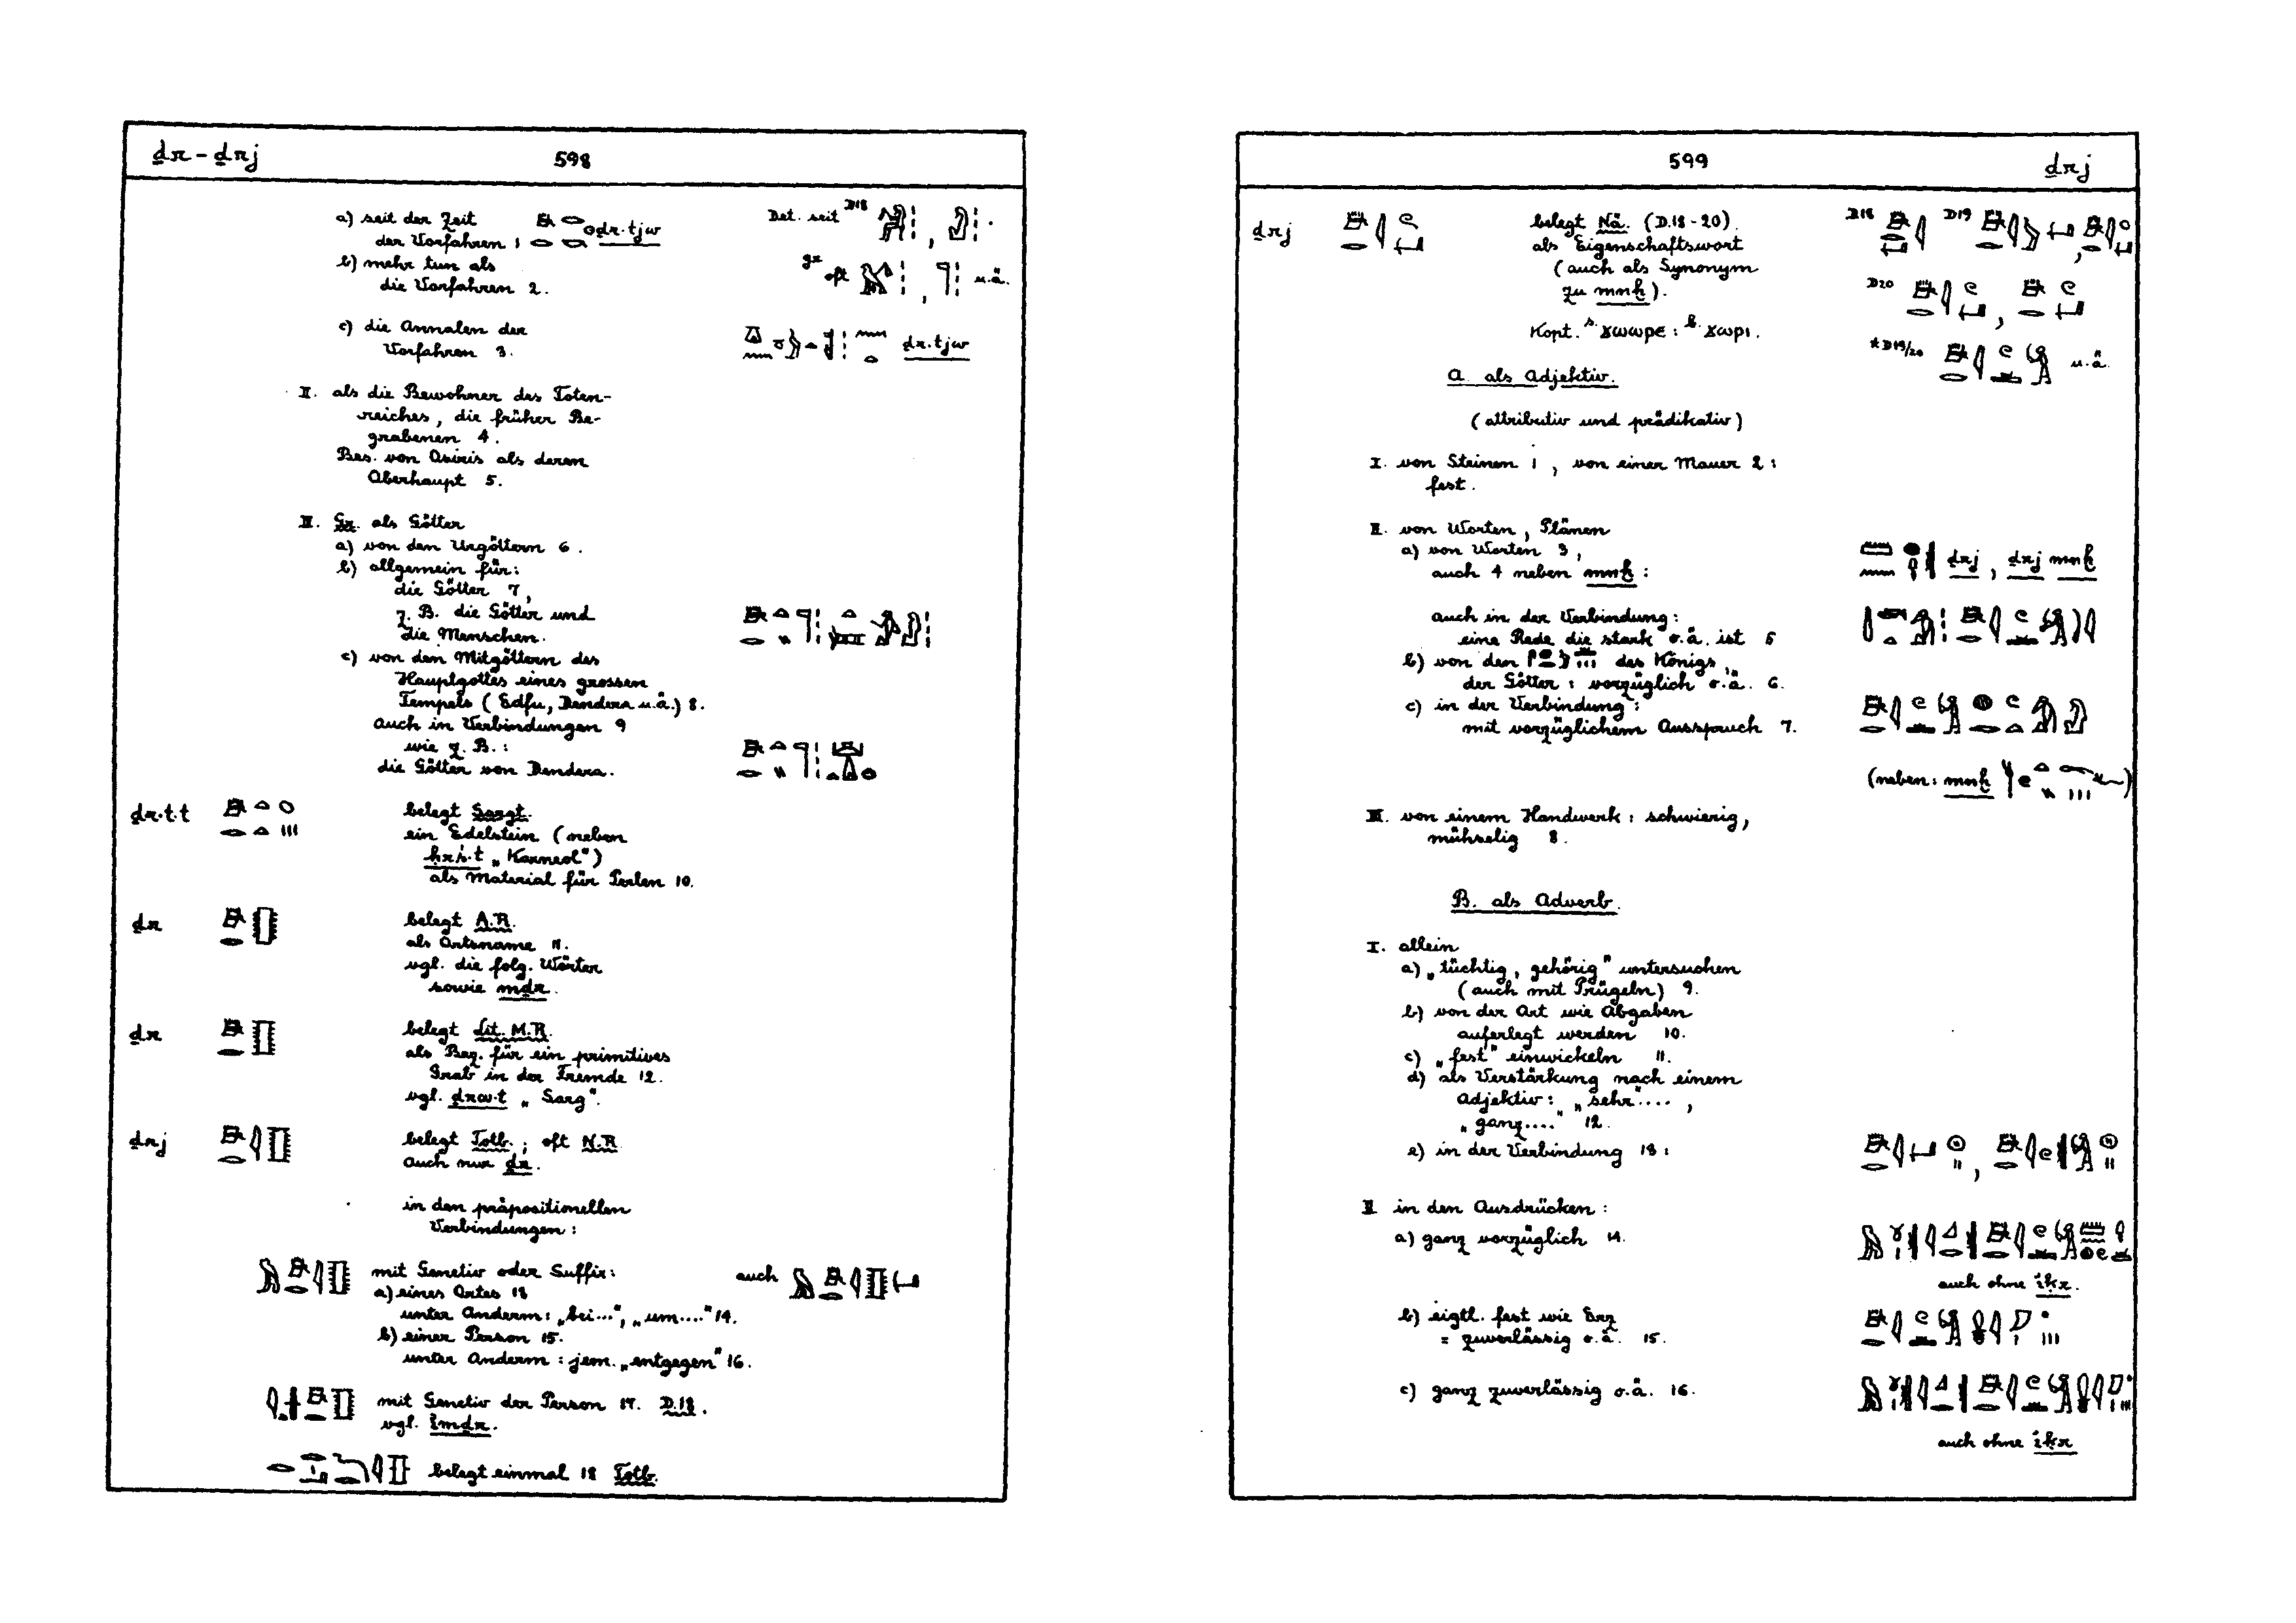 ḏr - ḏrj
598
a) seit der Zeit
der Vorfahren 1 ḏr.tjw
Det. seit D18
b) mehr tun als
die Vorfahren 2.
gr oft u.ä.
c) die Annalen der
Vorfahren 3. ḏr.tjw
II. als die Bewohner des Toten-
reiches, die früher Be-
grabenen 4.
Bes. von Osiris als deren
Oberhaupt 5.
III. Gr. als Götter
a) von den Urgöttern 6.
b) allgemein für:
die Götter 7,
z.B. die Götter und
die Menschen.
c) von den Mitgöttern des
Hauptgottes eines grossen
Tempels (Edfu, Dendera u.ä.) 8.
auch in Verbindungen 9
wie z.B.:
die Götter von Dendera.
ḏr.t.t
belegt Sargt.
ein Edelstein (neben
ḥrś.t „Karneol“)
als Material für Perlen 10.
ḏr
belegt A.R.
als Ortsname 11.
vgl. die folg. Wörter
sowie mḏr.
ḏr
belegt Lit. M.R.
als Bez. für ein primitives
Grab in der Fremde 12.
vgl. ḏrw.t „Sarg“.
ḏrj
belegt Totb.; oft N.R.
auch nur ḏr.
in den präpositionellen
Verbindungen:
mit Genetiv oder Suffix:
auch
a) eines Ortes 13
unter Anderm: „bei...“, „um....“ 14.
b) einer Person 15.
unter Anderm: jem. „entgegen“ 16.
mit Genetiv der Person 17. D.18.
vgl. ỉmḏr.
belegt einmal 18 Totb.
599
ḏrj
ḏrj
belegt Nä. (D.18-20).
als Eigenschaftswort
(auch als Synonym
zu mnḫ).
Kopt. s. ϫωωρε : b. ϫωρι.
D18 D19
D20
*D19/20 u.ä.
A. als Adjektiv.
(attributiv und prädikativ)
I. von Steinen 1, von einer Mauer 2:
fest.
II. von Worten, Plänen
a) von Worten 3,
auch 4 neben mnḫ:
ḏrj, ḏrj mnḫ
auch in der Verbindung:
eine Rede die stark o.ä. ist 5
b) von den des Königs,
der Götter: vorzüglich o.ä. 6.
c) in der Verbindung:
mit vorzüglichem Ausspruch 7.
(neben: mnḫ )
III. von einem Handwerk: schwierig,
mühselig 8.
B. als Adverb.
I. allein
a) „tüchtig, gehörig“ untersuchen
(auch mit Prügeln) 9.
b) von der Art wie Abgaben
auferlegt werden 10.
c) „fest“ einwickeln 11.
d) als Verstärkung nach einem
Adjektiv: „sehr“....,
„ganz....“ 12.
e) in der Verbindung 13:
II. in den Ausdrücken:
a) ganz vorzüglich 14.
auch ohne ỉḳr.
b) eigtl. fest wie Erz
= zuverlässig o.ä. 15.
c) ganz zuverlässig o.ä. 16.
auch ohne ỉḳr